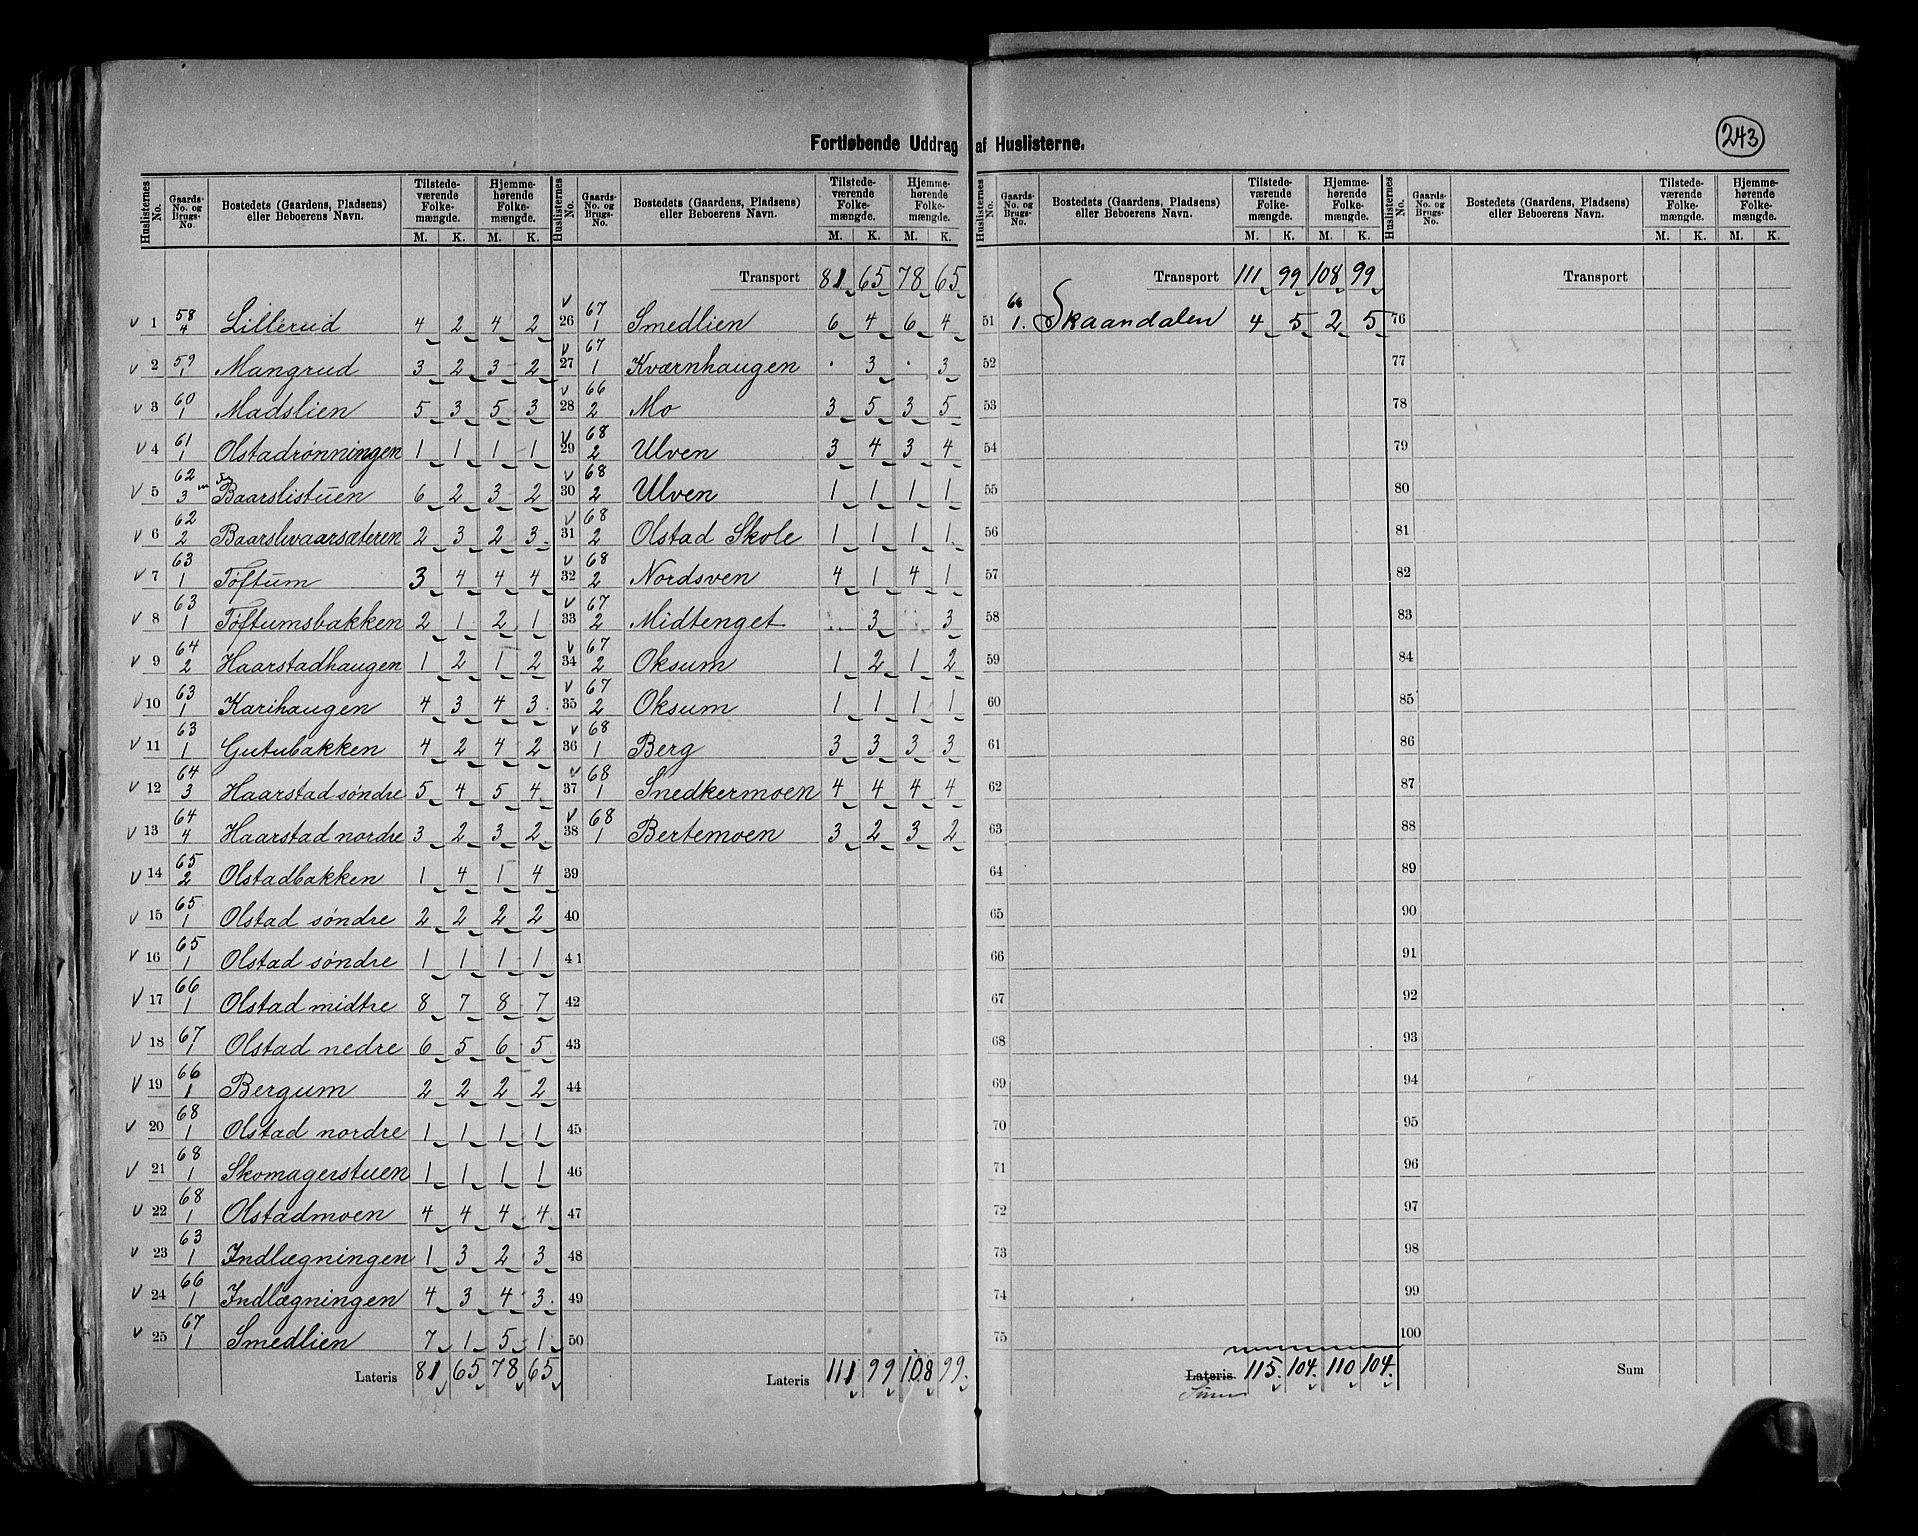 Fortløbende Uddrag af Huslisterne.
243
Huslisternes No. | Gaards-No. og Brugs-No. | Bostedets (Gaardens, Pladsens) eller Beboerens Navn. | Tilstedeværende Folkemængde. M. K. | Hjemmehørende Folkemængde. M. K.
v 1 58/4 Lillerud 4 2 4 2
v 2 59/1 Mangrud 3 2 3 2
v 3 60/1 Madslien 5 3 5 3
v 4 61/1 Olstadrønningen 1 1 1 1
v 5 62/3 Baarslistuen 6 2 3 2
v 6 62/2 Baarslivaarsæteren 2 3 2 3
v 7 63/1 Toftum 3 4 4 4
v 8 63/1 Toftumsbakken 2 1 2 1
v 9 64/2 Haarstadhaugen 1 2 1 2
v 10 63/1 Karihaugen 4 3 4 3
v 11 63/1 Gutubakken 4 2 4 2
v 12 64/3 Haarstad søndre 5 4 5 4
v 13 64/4 Haarstad nordre 3 2 3 2
v 14 65/2 Olstadbakken 1 4 1 4
v 15 65/1 Olstad søndre 2 2 2 2
v 16 65/1 Olstad søndre 1 1 1 1
v 17 66/1 Olstad midtre 8 7 8 7
v 18 67/1 Olstad nedre 6 5 6 5
v 19 66/1 Bergum 2 2 2 2
v 20 68/1 Olstad nordre 1 1 1 1
v 21 68/1 Skomagerstuen 1 1 1 1
v 22 68/1 Olstadmoen 4 4 4 4
v 23 63/1 Indlægningen 1 3 2 3
v 24 66/1 Indlægningen 4 3 4 3
v 25 67/1 Smedlien 7 1 5 1
Lateris 81 65 78 65
Huslisternes No. | Gaards-No. og Brugs-No. | Bostedets (Gaardens, Pladsens) eller Beboerens Navn. | Tilstedeværende Folkemængde. M. K. | Hjemmehørende Folkemængde. M. K.
Transport 81 65 78 65
v 26 67/1 Smedlien 6 4 6 4
v 27 67/1 Kværnhaugen · 3 · 3
v 28 66/2 Mo 3 5 3 5
v 29 68/2 Ulven 3 4 3 4
v 30 68/2 Ulven 1 1 1 1
v 31 68/2 Olstad Skole 1 1 1 1
v 32 68/2 Nordsven 4 1 4 1
v 33 67/2 Midtenget 3 3
v 34 67/2 Oksum 1 2 1 2
v 35 67/2 Oksum 1 1 1 1
v 36 68/1 Berg 3 3 3 3
v 37 68/1 Snedkermoen 4 4 4 4
v 38 68/1 Bertemoen 3 2 3 2
39
40
41
42
43
44
45
46
47
48
49
50
Lateris 111 99 108 99.
Huslisternes No. | Gaards-No. og Brugs-No. | Bostedets (Gaardens, Pladsens) eller Beboerens Navn. | Tilstedeværende Folkemængde. M. K. | Hjemmehørende Folkemængde. M. K.
Transport 111 99 108 99
51 1. Skaandalen 4 5 2 5
52
53
54
55
56
57
58
59
60
61
62
63
64
65
66
67
68
69
70
71
72
73
74
75
Lateris 115. 104. 110 104.
Sum
Huslisternes No. | Gaards-No. og Brugs-No. | Bostedets (Gaardens, Pladsens) eller Beboerens Navn. | Tilstedeværende Folkemængde. M. K. | Hjemmehørende Folkemængde. M. K.
Transport
76
77
78
79
80
81
82
83
84
85
86
87
88
89
90
91
92
93
94
95
96
97
98
99
100
Sum